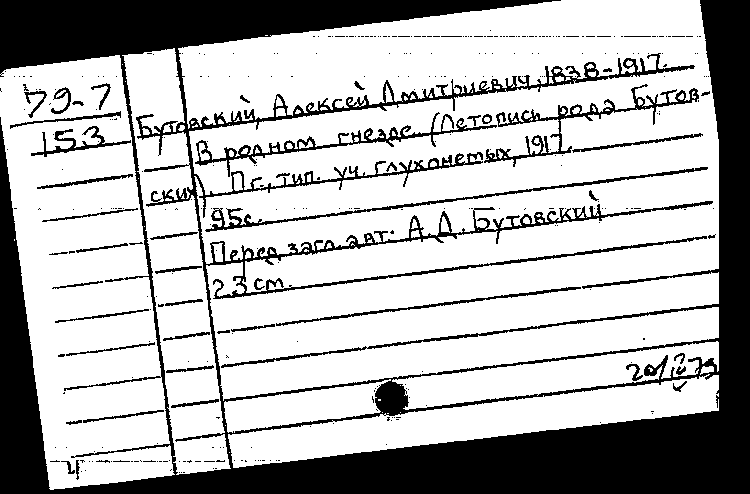 79-7
153
Бутовский, Алексей Дмитриевич, 1838-1917.
В родном гнезде (Летопись рода Бутов-
ских). Пг., тип. уч. глухонемых, 1917.
95с.
Перед загл. авт. А.Д. Бутовский
23 см.
20/IV 79